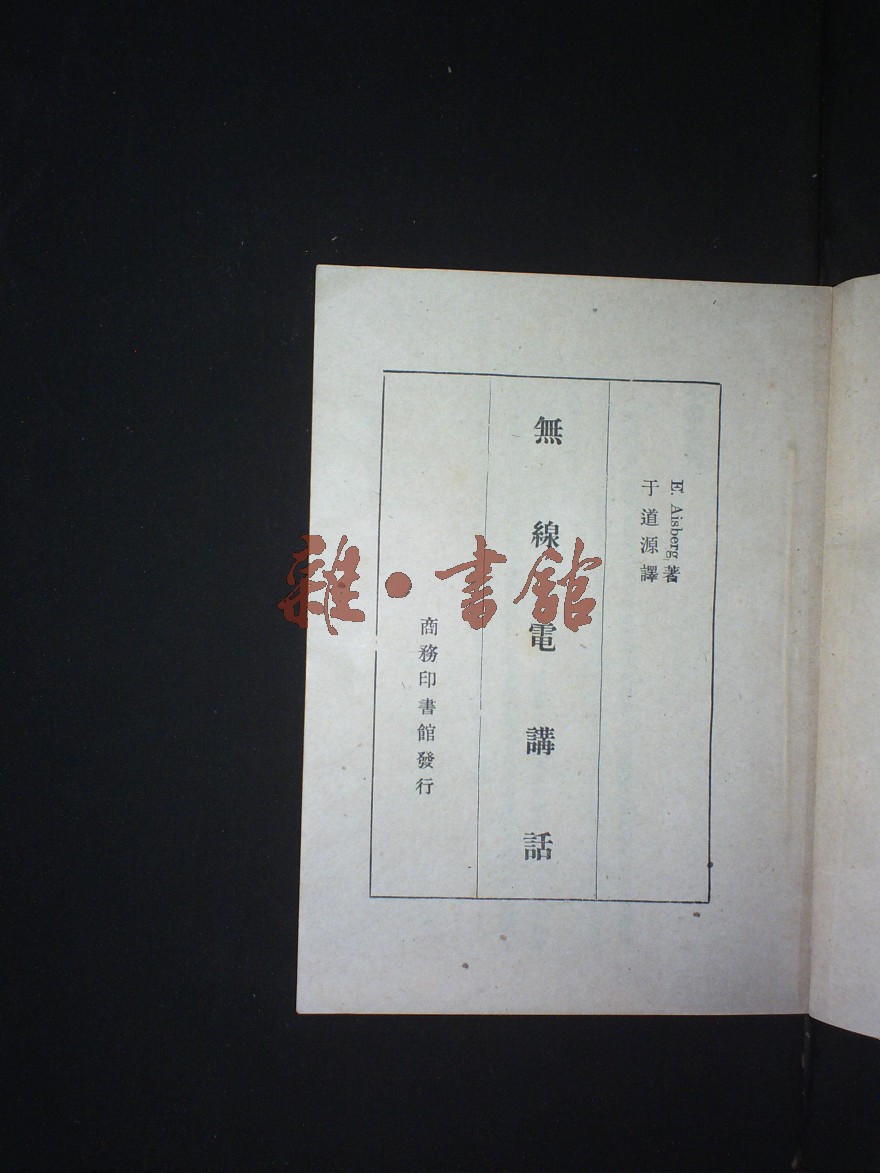 E. Aisberg著
于道源譯
無線電講話
商務印書館發行
雜·書館